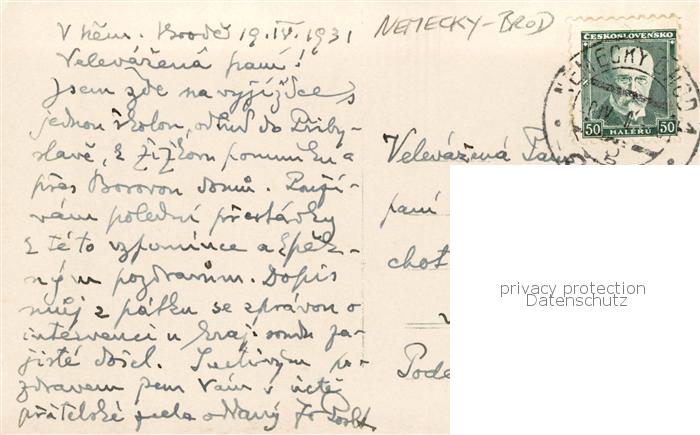 V něm. Brodě 19.IV.1931
NEMECKY-BROD
Velevážená paní!
Jsem zde na vyjížďce s
jednou školou, odtud do Přiby-
slavě, k Žižkovu pomníku a
přes Borovou domů. Použí-
vám polední přestávky
k této vzpomínce a spěš-
ným pozdravům. Dopis
můj z pátku se zprávou o
intervenci u kraj. soudu za-
jisté došel. Srdečným po-
zdravem jsem Vám v úctě
přátelské zcela oddaný
ČESKOSLOVENSKO
50 HALÉŘŮ 50
NĚMECKÝ BROD
Velevážená
paní
chot
Pode
privacy protection
Datenschutz